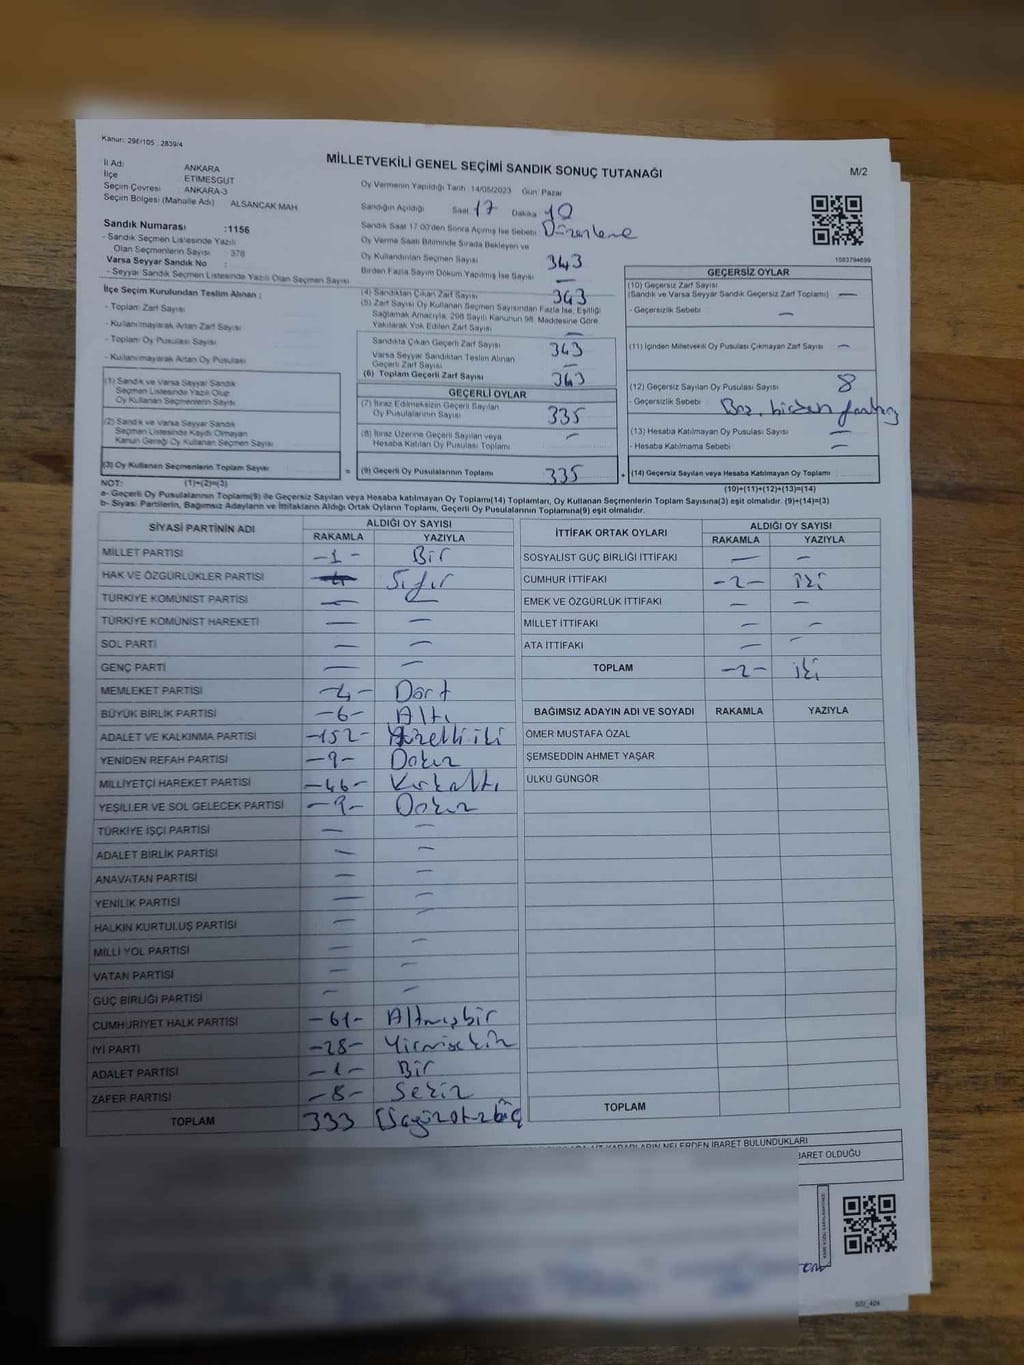 Kanun: 298/105 2839/4
MİLLETVEKİLİ GENEL SEÇİMİ SANDIK SONUÇ TUTANAĞI
M/2
İl Adı: ANKARA
İlçe ETİMESGUT
Seçim Çevresi ANKARA-3
Seçim Bölgesi (Mahalle Adı) ALSANCAK MAH
Sandık Numarası :1156
- Sandık Seçmen Listesinde Yazılı
Olan Seçmenlerin Sayısı : 378
Varsa Seyyar Sandık No :
- Seyyar Sandık Seçmen Listesinde Yazılı Olan Seçmen Sayısı
İlçe Seçim Kurulundan Teslim Alınan ;
- Toplam Zarf Sayısı
- Kullanılmayarak Artan Zarf Sayısı
- Toplam Oy Pusulası Sayısı
- Kullanılmayarak Artan Oy Pusulası
(1) Sandık ve Varsa Seyyar Sandık
Seçmen Listesinde Yazılı Olup
Oy Kullanan Seçmenlerin Sayısı
(2) Sandık ve Varsa Seyyar Sandık
Seçmen Listesinde Kaydı Olmayan
Kanun Gereği Oy Kullanan Seçmen Sayısı
(3) Oy Kullanan Seçmenlerin Toplam Sayısı
Oy Vermenin Yapıldığı Tarih 14/05/2023 Gün Pazar
Sandığın Açıldığı Saat 17 Dakika 40
Sandık Saat 17.00'den Sonra Açılmış İse Sebebi Düzenleme
Oy Verme Saati Bitiminde Sırada Bekleyen ve
Oy Kullandırılan Seçmen Sayısı 343
Birden Fazla Sayım Döküm Yapılmış İse Sayısı —
(4) Sandıktan Çıkan Zarf Sayısı 343
(5) Zarf Sayısı Oy Kullanan Seçmen Sayısından Fazla İse, Eşitliği
Sağlamak Amacıyla, 298 Sayılı Kanunun 98. Maddesine Göre
Yakılarak Yok Edilen Zarf Sayısı —
Sandıkta Çıkan Geçerli Zarf Sayısı 343
Varsa Seyyar Sandıktan Teslim Alınan
Geçerli Zarf Sayısı —
(6) Toplam Geçerli Zarf Sayısı 343
GEÇERLİ OYLAR
(7) İtiraz Edilmeksizin Geçerli Sayılan
Oy Pusulalarının Sayısı 335
(8) İtiraz Üzerine Geçerli Sayılan veya
Hesaba Katılan Oy Pusulaları Toplamı —
= (9) Geçerli Oy Pusulalarının Toplamı 335
1083794699
GEÇERSİZ OYLAR
(10) Geçersiz Zarf Sayısı
(Sandık ve Varsa Seyyar Sandık Geçersiz Zarf Toplamı) —
- Geçersizlik Sebebi —
(11) İçinden Milletvekili Oy Pusulası Çıkmayan Zarf Sayısı —
(12) Geçersiz Sayılan Oy Pusulası Sayısı 8
- Geçersizlik Sebebi Boş, birden fazla
(13) Hesaba Katılmayan Oy Pusulası Sayısı —
- Hesaba Katılmama Sebebi —
+ (14) Geçersiz Sayılan veya Hesaba Katılmayan Oy Toplamı
NOT: (1)+(2)=(3) (10)+(11)+(12)+(13)=(14)
a- Geçerli Oy Pusulalarının Toplamı(9) ile Geçersiz Sayılan veya Hesaba katılmayan Oy Toplamı(14) Toplamları, Oy Kullanan Seçmenlerin Toplam Sayısına(3) eşit olmalıdır. (9)+(14)=(3)
b- Siyasi Partilerin, Bağımsız Adayların ve İttifakların Aldığı Ortak Oyların Toplamı, Geçerli Oy Pusulalarının Toplamına(9) eşit olmalıdır.
SİYASİ PARTİNİN ADI ALDIĞI OY SAYISI
RAKAMLA YAZIYLA
MİLLET PARTİSİ -1- Bir
HAK VE ÖZGÜRLÜKLER PARTİSİ Sıfır
TÜRKİYE KOMÜNİST PARTİSİ — —
TÜRKİYE KOMÜNİST HAREKETİ — —
SOL PARTİ — —
GENÇ PARTİ — —
MEMLEKET PARTİSİ -4- Dört
BÜYÜK BİRLİK PARTİSİ -6- Altı
ADALET VE KALKINMA PARTİSİ -152- Yüzelliiki
YENİDEN REFAH PARTİSİ -9- Dokuz
MİLLİYETÇİ HAREKET PARTİSİ -46- Kırkaltı
YEŞİLLER VE SOL GELECEK PARTİSİ -9- Dokuz
TÜRKİYE İŞÇİ PARTİSİ — —
ADALET BİRLİK PARTİSİ — —
ANAVATAN PARTİSİ — —
YENİLİK PARTİSİ — —
HALKIN KURTULUŞ PARTİSİ — —
MİLLİ YOL PARTİSİ — —
VATAN PARTİSİ — —
GÜÇ BİRLİĞİ PARTİSİ — —
CUMHURİYET HALK PARTİSİ -61- Altmışbir
İYİ PARTİ -28- Yirmisekiz
ADALET PARTİSİ -1- Bir
ZAFER PARTİSİ -8- Sekiz
TOPLAM 333
İTTİFAK ORTAK OYLARI ALDIĞI OY SAYISI
RAKAMLA YAZIYLA
SOSYALİST GÜÇ BİRLİĞİ İTTİFAKI — —
CUMHUR İTTİFAKI -2- iki
EMEK VE ÖZGÜRLÜK İTTİFAKI — —
MİLLET İTTİFAKI — —
ATA İTTİFAKI — —
TOPLAM -2- iki
BAĞIMSIZ ADAYIN ADI VE SOYADI RAKAMLA YAZIYLA
ÖMER MUSTAFA ÖZAL
ŞEMSEDDİN AHMET YAŞAR
ÜLKÜ GÜNGÖR
TOPLAM
KARARLARIN NELERDEN İBARET BULUNDUKLARI
İBARET OLDUĞU